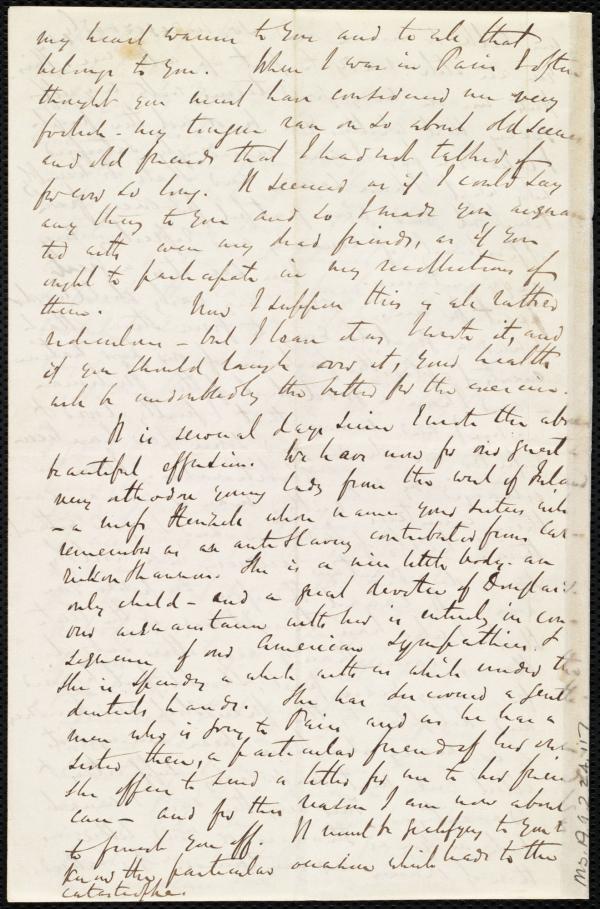 my heart warm to you and to all that
belongs to you. When I was in Paris I often
thought you must have considered me very
foolish - my tongue ran on so about old scenes
and old friends that I had not talked of
for ever so long. It seemed as if I could say
any thing to you and so I made you acquain
ted with even my dead friends, as if you
ought to participate in my recollections of
them. Now I suppose this is all rather
ridiculous - but I leave it as I wrote it, and
if you should laugh over it, your health
will be undoubtedly the better for the exercise.
It is several days since I wrote the above
beautiful effusion. We have now for our guest a
very orthodox young lady from the west of Ireland
- a Miss whose name your sisters will
remember as an anti Slavery contributor from Car
rick on Shannon. She is a nice little body - an
only child - and a great devotee of Douglass.
Our acquaintance with her is entirely in con-
sequence of our American sympathies. &
She is spending a while with us while under the
dentist's hands. She has discovered a gentle
man who is going to Paris and as he has a
sister there, a particular friend of her own
she offers to send a letter for me to her friend's
care - and for this reason I am now about
to finish you off. It must be gratifying to you to
know the particular occasion which leads to the
catastrophe.
Ms. A.9.2